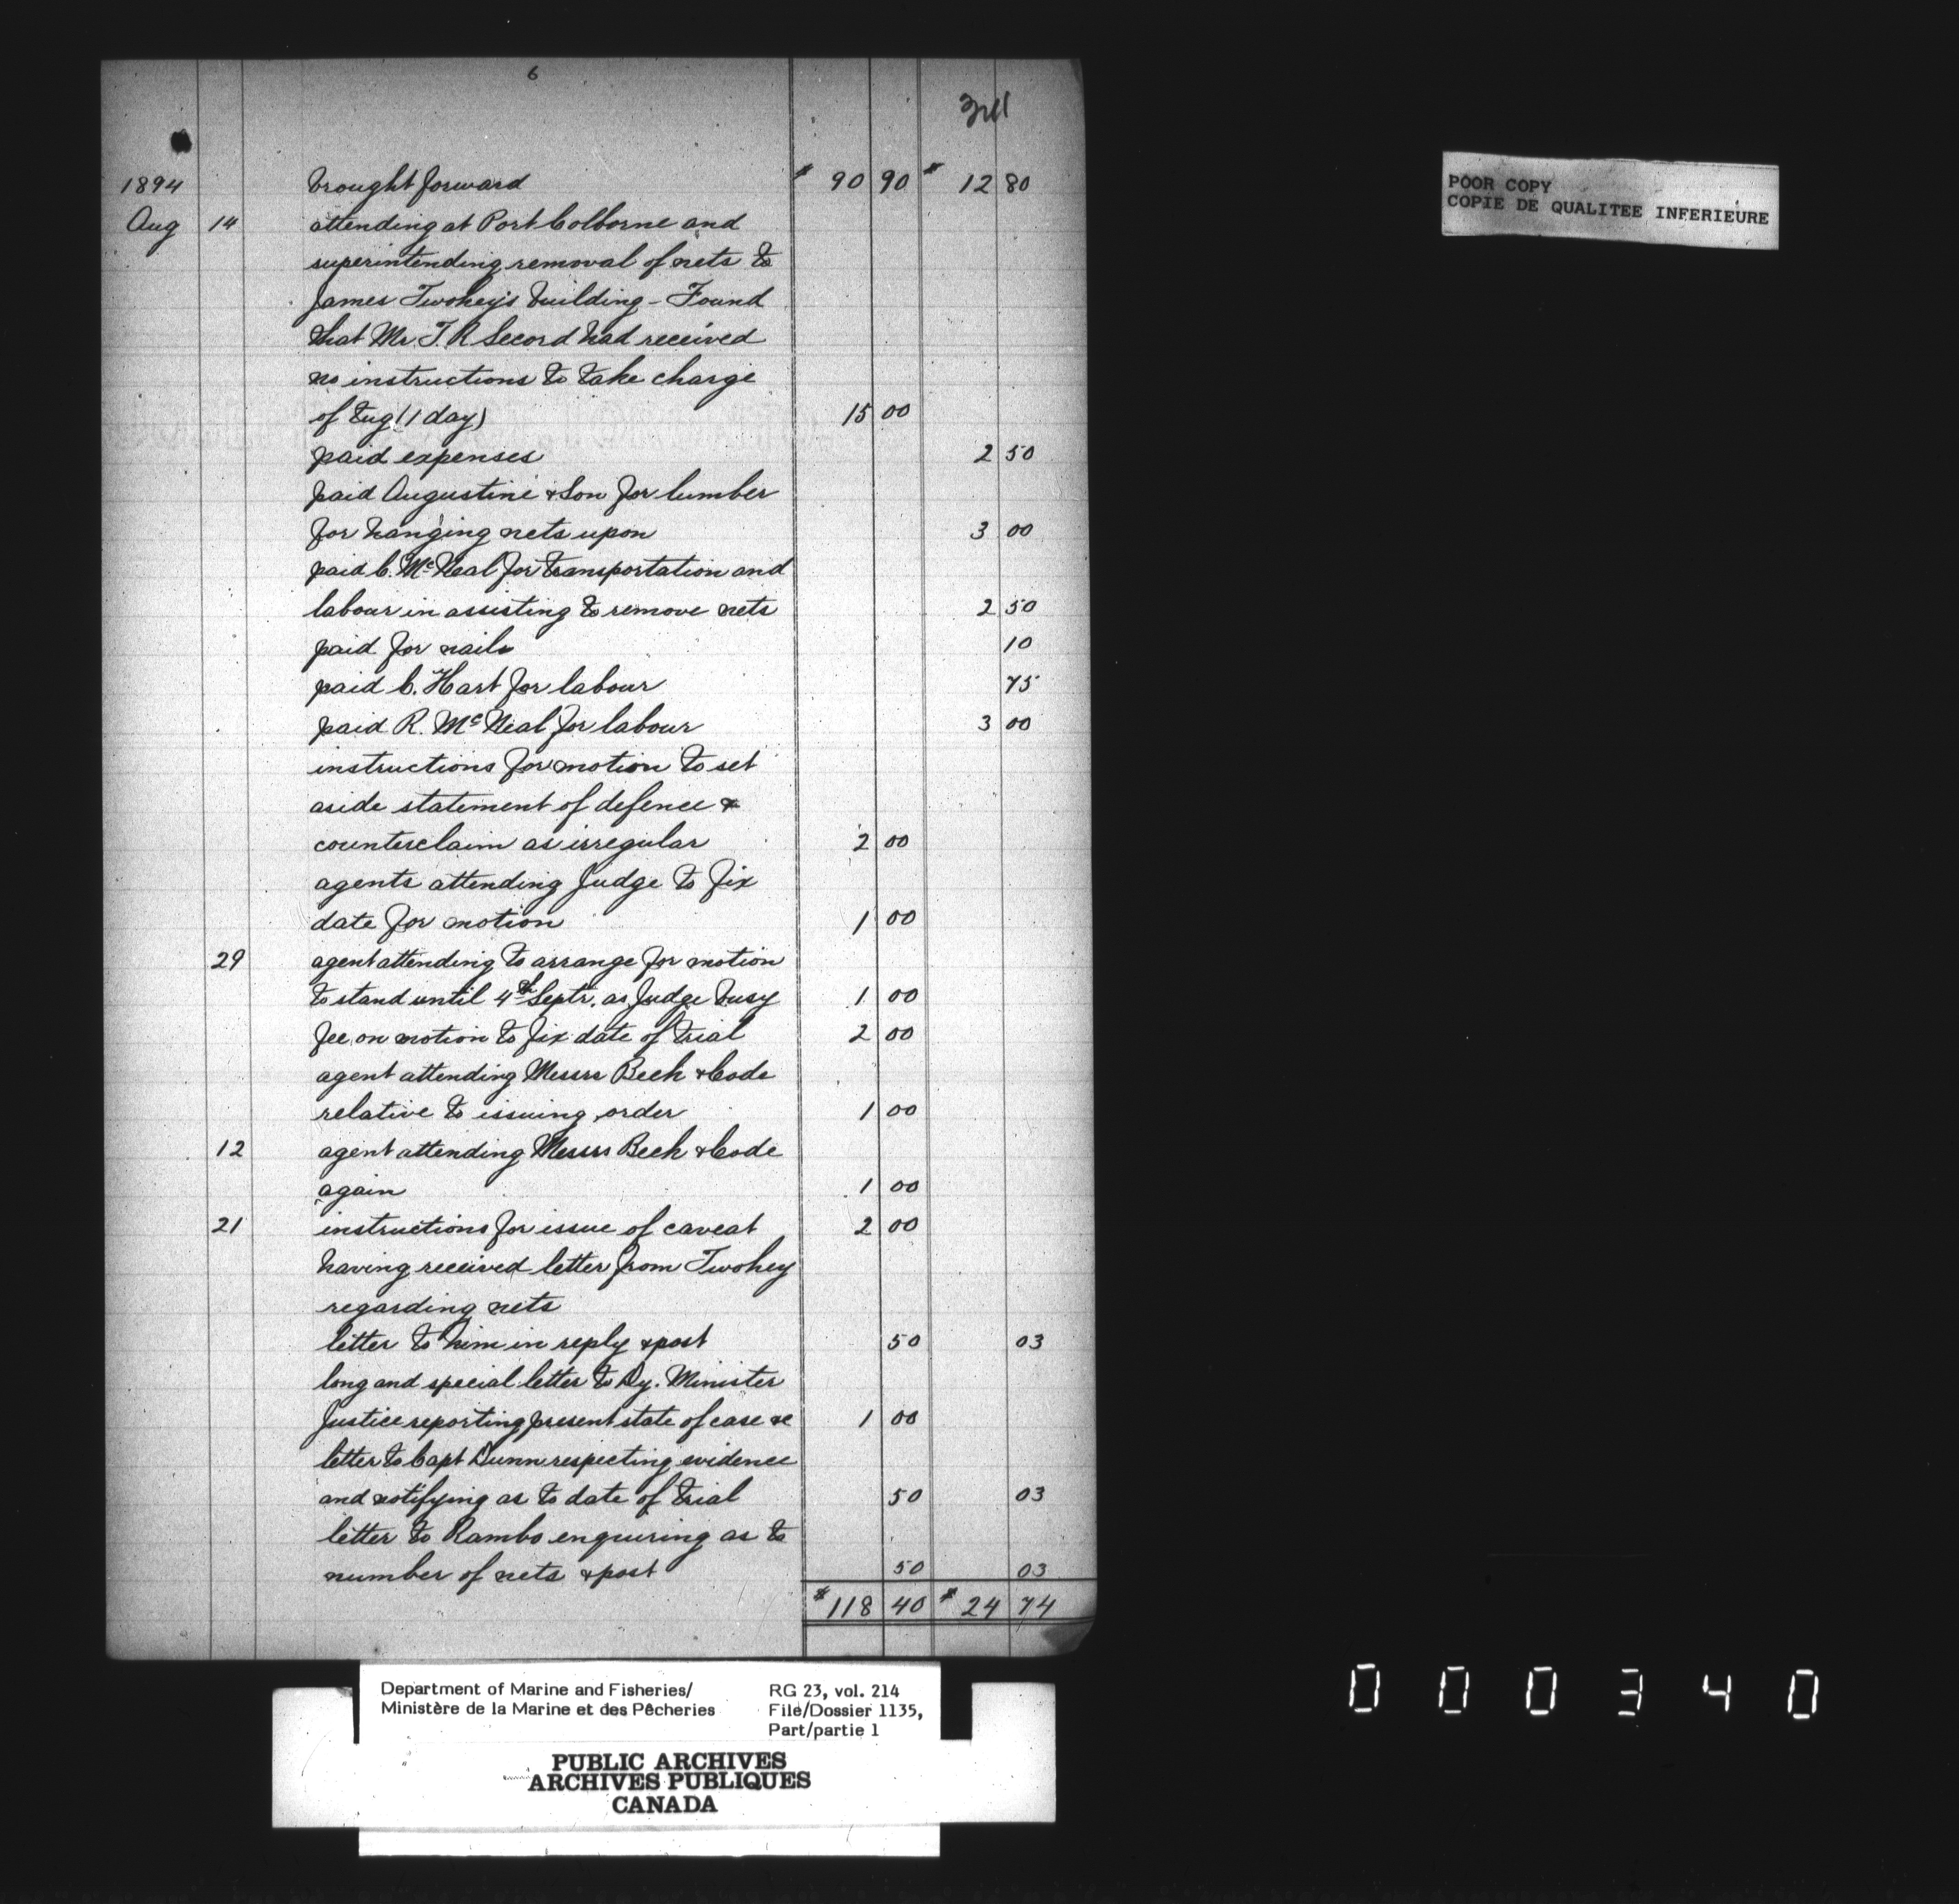 6
1894 brought forward $ 90 90 $ 12 80
Aug 14 attending at Port Colborne and
superintending removal of nets to
James Twohey's building - Found
that Mr T. R Secord had received
no instructions to take charge
of tug (1 day) 15 00
paid expenses 2 50
paid Augustine & Son for lumber
for hanging nets upon 3 00
paid C. McNeal for transportation and
labour in assisting to remove nets 2 50
paid for nails 10
paid C. Hart for labour 75
paid R. McNeal for labour 3 00
instructions for motion to set
aside statement of defence &
counterclaim as irregular 2 00
agents attending Judge to fix
date for motion 1 00
29 agent attending to arrange for motion
to stand until 4th Septr. as Judge busy 1 00
fee on motion to fix date of trial 2 00
agent attending Messrs Beek & Code
relative to issuing order 1 00
12 agent attending Messrs Beek & Code
again 1 00
21 instructions for issue of caveat 2 00
having received letter from Twohey
regarding nets
letter to him in reply & post 50 03
long and special letter to Dy. Minister
Justice reporting present state of case &c 1 00
letter to Capt Dunn respecting evidence
and notifying as to date of trial 50 03
letter to Rambo enquiring as to
number of nets & post 50 03
$ 118 40 $ 24 74
POOR COPY
COPIE DE QUALITEE INFERIEURE
Department of Marine and Fisheries/
Ministère de la Marine et des Pêcheries
RG 23, vol. 214
File/Dossier 1135,
Part/partie 1
PUBLIC ARCHIVES
ARCHIVES PUBLIQUES
CANADA
000340